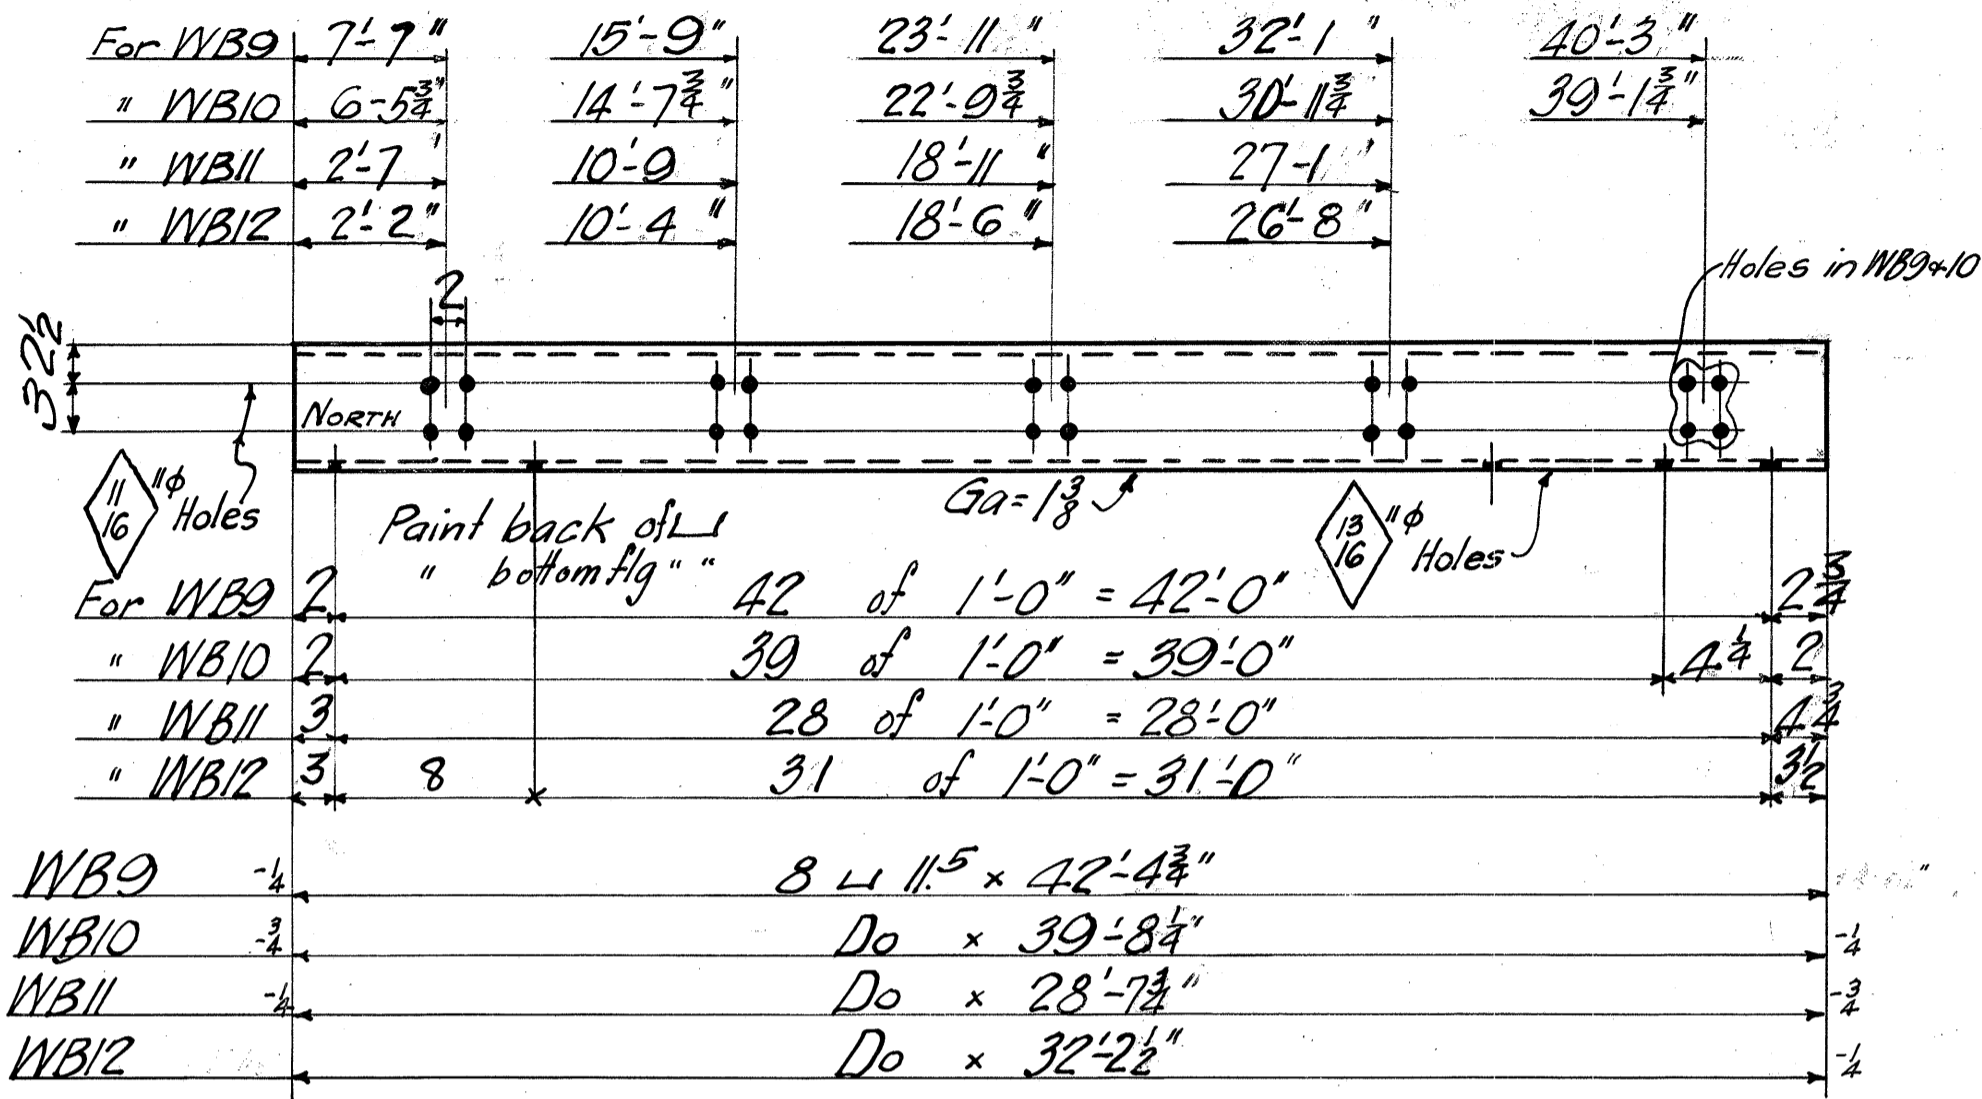 For WB9 7'-7" 15'-9" 23'-11" 32'-1" 40'-3"
" WB10 6-5¾" 14'-7¾" 22'-9¾" 30'-11¾" 39'-1¾"
" WB11 2'-7' 10'-9 18'-11" 27-1'
" WB12 2'-2" 10'-4" 18'-6" 26'-8"
Holes in WB9&10
2
2½
3
NORTH
11/16 "ϕ Holes
Paint back of ⊔
" bottom flg " "
Ga=1⅜
13/16 "ϕ Holes
For WB9 2 42 of 1'-0" = 42'-0" 2¾
" WB10 2 39 of 1'-0" = 39'-0" 4¼ 2
" WB11 3 28 of 1'-0" = 28'-0" 4¾
" WB12 3 8 31 of 1'-0" = 31'-0" 3½
WB9 -¼ 8 ⊔ 11.5 × 42'-4¾"
WB10 -¾ Do × 39'-8¼" -¼
WB11 -¼ Do × 28'-7¾" -¾
WB12 Do × 32'-2½" -¼